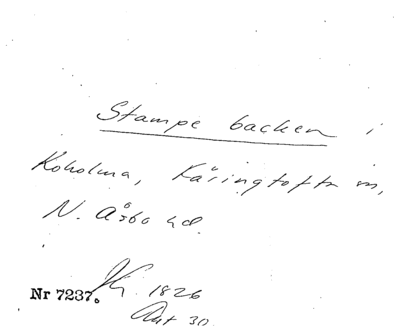 Stampe backen i
Koholma, Färingtofta sn,
N. Åsbo hd.
Nr 7237. 1826
30